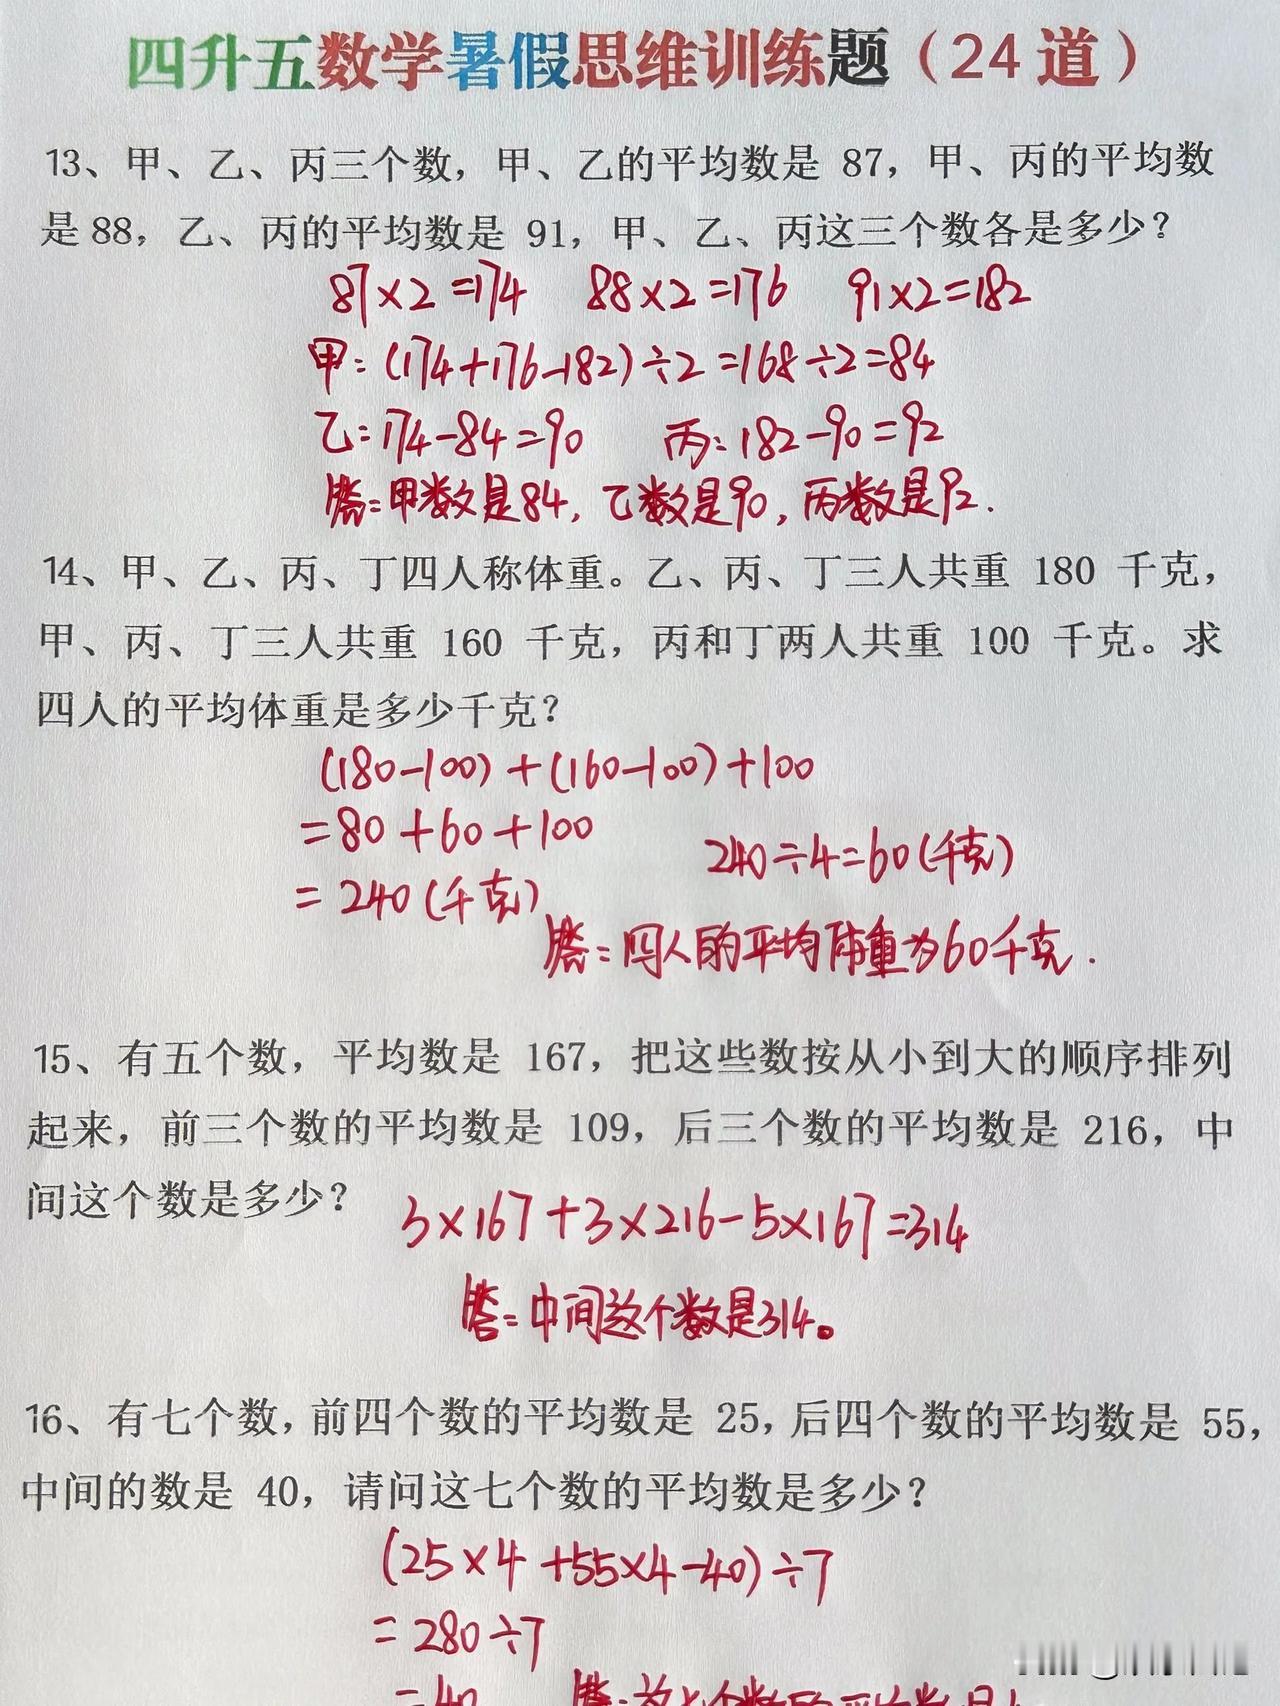 四升五数学暑假思维训练题（24道）
13、甲、乙、丙三个数，甲、乙的平均数是 87，甲、丙的平均数
是 88，乙、丙的平均数是 91，甲、乙、丙这三个数各是多少？
87×2=174 88×2=176 91×2=182
甲：(174+176-182)÷2=168÷2=84
乙：174-84=90 丙：182-90=92
答：甲数是84，乙数是90，丙数是92.
14、甲、乙、丙、丁四人称体重。乙、丙、丁三人共重 180 千克，
甲、丙、丁三人共重 160 千克，丙和丁两人共重 100 千克。求
四人的平均体重是多少千克？
(180-100)+(160-100)+100
=80+60+100
240÷4=60(千克)
=240(千克)
答：四人的平均体重为60千克.
15、有五个数，平均数是 167，把这些数按从小到大的顺序排列
起来，前三个数的平均数是 109，后三个数的平均数是 216，中
间这个数是多少？
3×167+3×216-5×167=314
答：中间这个数是314。
16、有七个数，前四个数的平均数是 25，后四个数的平均数是 55，
中间的数是 40，请问这七个数的平均数是多少？
(25×4+55×4-40)÷7
=280÷7
=40 答：这七个数的平均数是